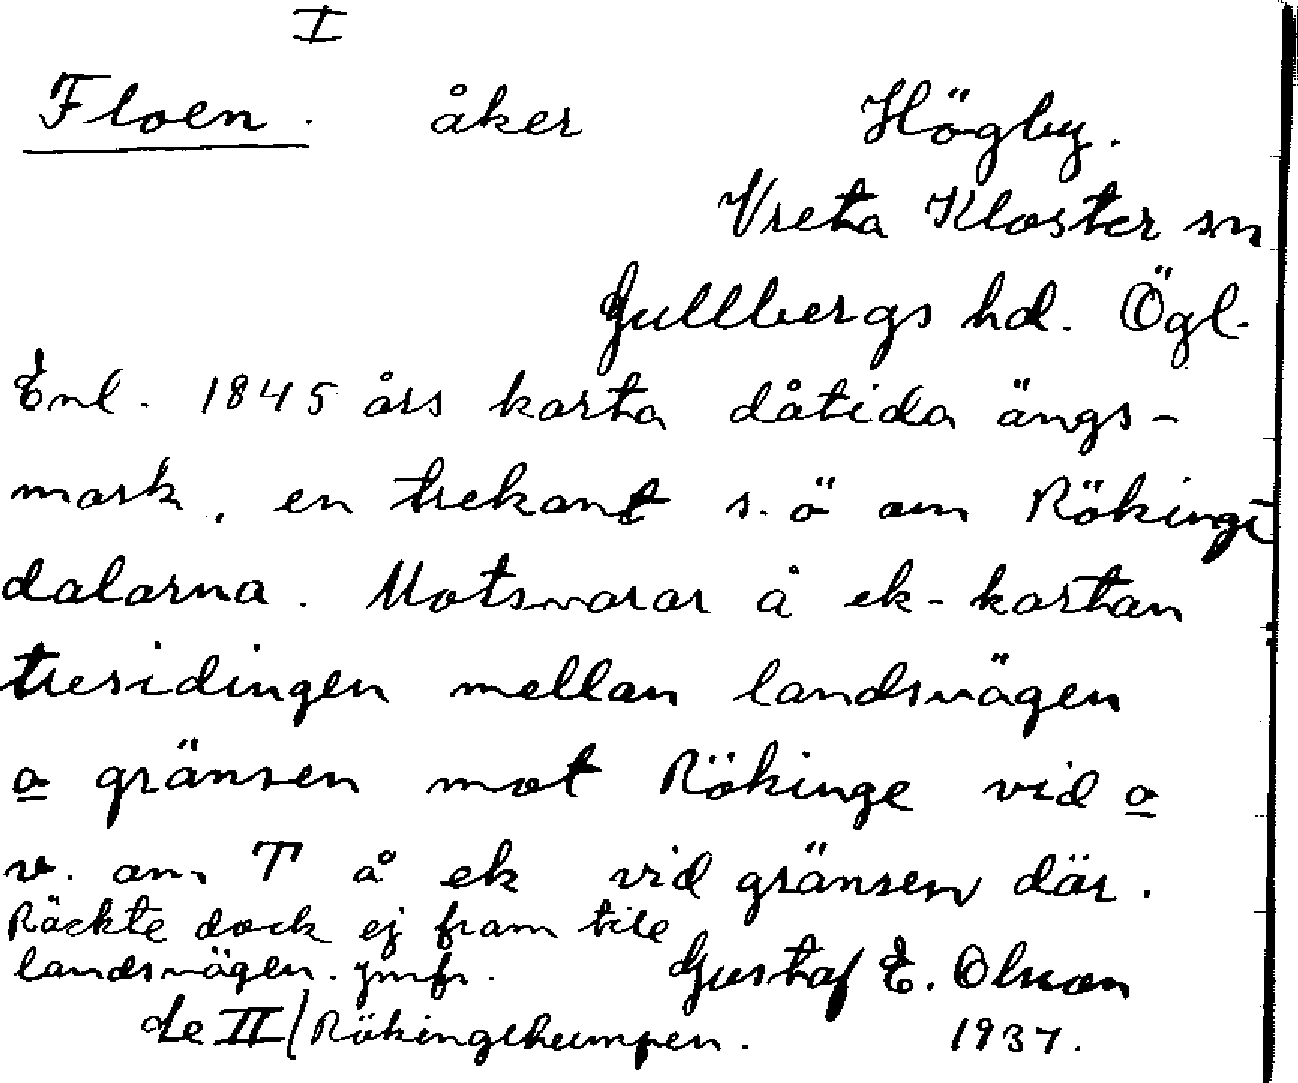 I
Floen. åker Högby.
Vreta Kloster sn
Gullbergs hd. Ögl.
Enl. 1845 års karta dåtida ängs-
mark, en trekant s.ö om Rökinge-
dalarna. Motsvarar å ek-kartan
tresidingen mellan landsvägen
o gränsen mot Rökinge vid o
v. om T å ek vid gränsen där.
Räckte dock ej fram till
landsvägen. jmfr. Gustaf E. Olsson
se II/Rökingekumpen. 1937.